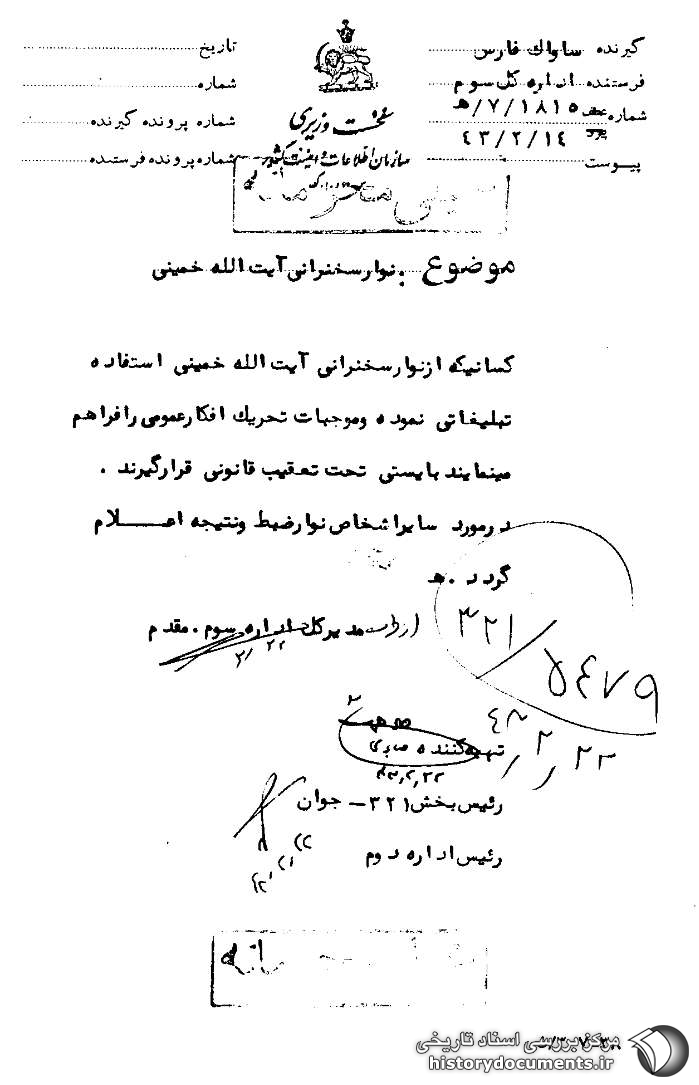 گیرنده ساواک فارس
فرستنده اداره کل سوم
شماره ۱۸۱۵/۷/ه
۴۳/۲/۱۴
پیوست
تاریخ
شماره
شماره پرونده گیرنده
شماره پرونده فرستنده
نخست وزیری
سازمان اطلاعات و امنیت کشور
موضوع نوار سخنرانی آیت الله خمینی
کسانیکه از نوار سخنرانی آیت الله خمینی استفاده
تبلیغاتی نموده وموجبات تحریک افکار عمومی را فراهم
مینمایند بایستی تحت تعقیب قانونی قرار گیرند .
در مورد سایر اشخاص نوار ضبط ونتیجه اعـــلام
گردد .ه
مدیر کل اداره سوم . مقدم
۳۲۱/۵۴۷۹
۴۳/۲/۲۲
تهیه کننده
۴۳/۲/۲۲
رئیس بخش ۳۲۱ - جوان
رئیس اداره دوم
مرکز بررسی اسناد تاریخی
historydocuments.ir